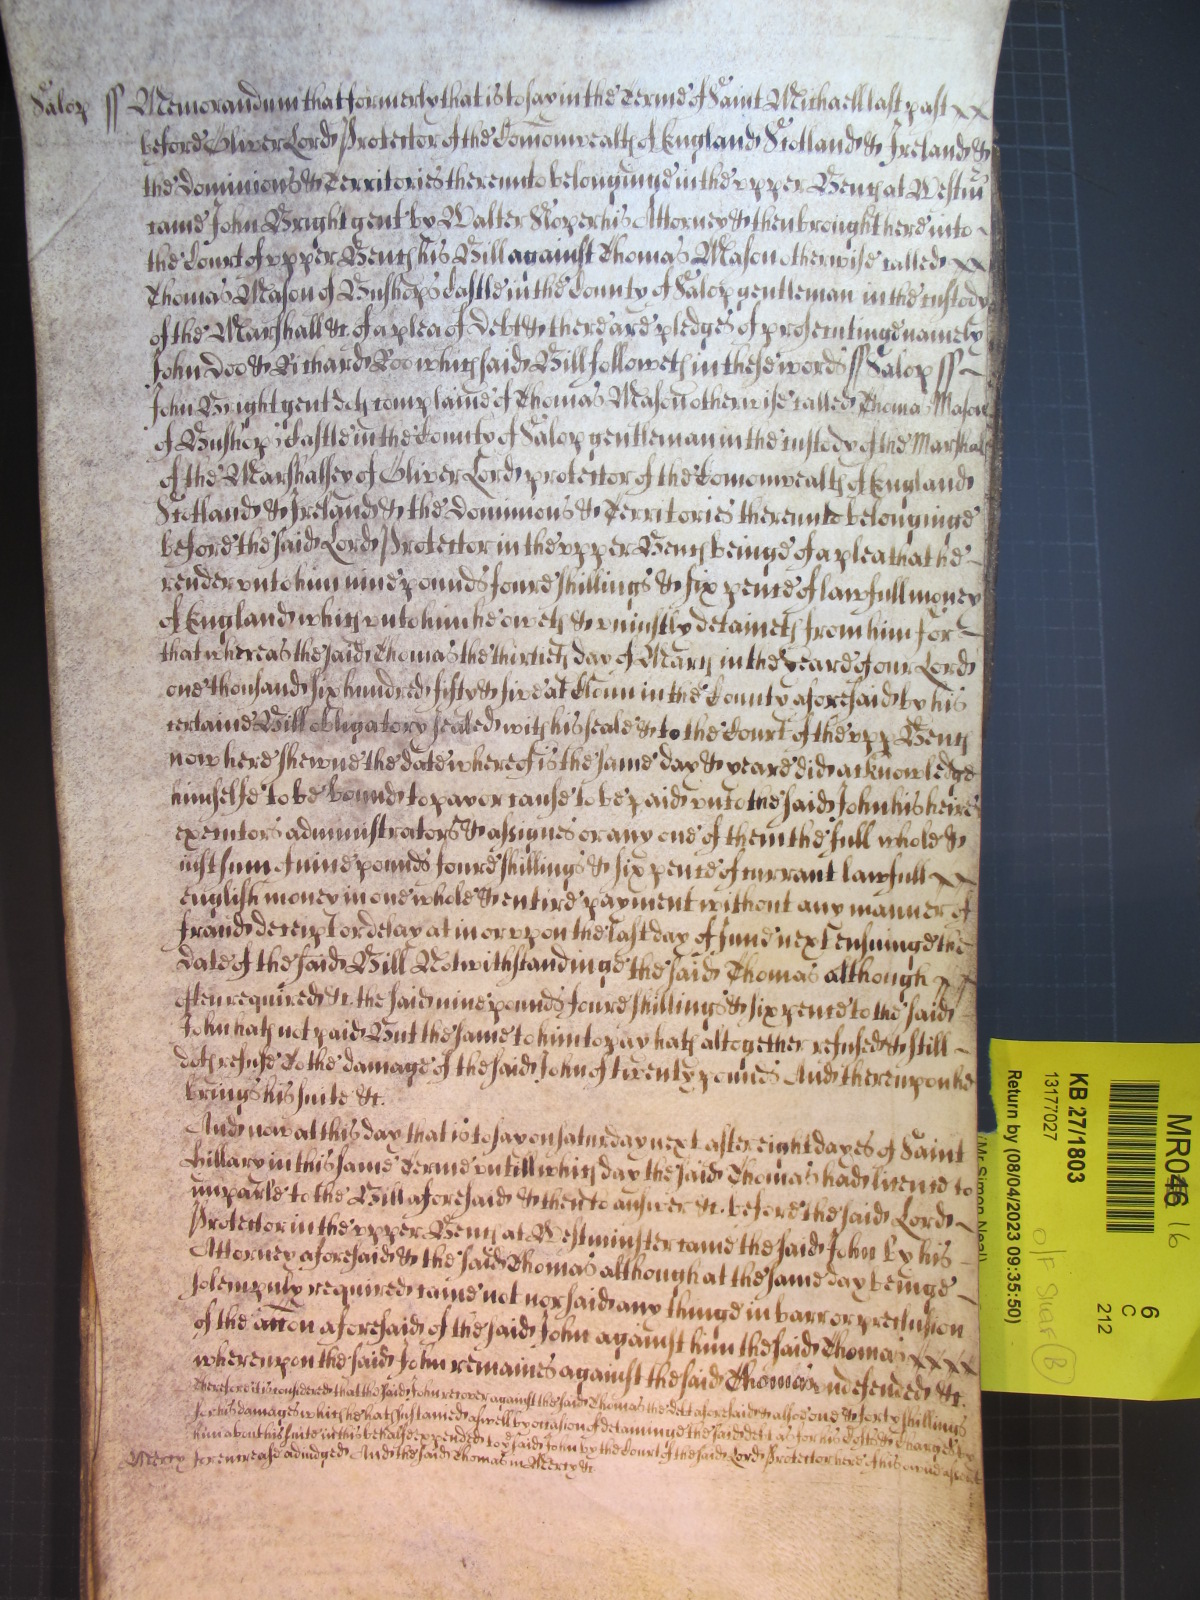 Salop ss Memorandum that formerly that is to say in the Terme of Saint Michaell last past xx
before Oliver Lord Protector of the Comonwealth of England Scotland & Ireland &
the dominions & Territories thereunto belonginge in the upper Bench at Westm
came John Bright gent by Walter Roper his Attorney & then brought here into
the Court of upper Bench his Bill against Thomas Mason otherwise called xx
Thomas Mason of Bushops Castle in the County of Salop gentleman in the custody
of the Marshall &c. of a plea of Debt & there are pledges of prosecutinge namely
John Doo & Richard Roo which said Bill followeth in these words ss Salop ss
John Bright gent doth complaine of Thomas Mason otherwise called Thomas Mason
of Bushops Castle in the County of Salop gentleman in the custody of the Marshall
of the Marshalsey of Oliver Lord protector of the Comonwealth of England
Scotland & Ireland & the Dominions & Territories thereunto belonginge
before the said Lord Protector in the upper Bench beinge of a plea that he
render unto him nine pounds foure shillings & six pence of lawfull money
of England which unto him he oweth & uniustly detaineth from him For
that whereas the said Thomas the thirtieth day of March in the yeare of our Lord
one thousand six hundred fifty & five at Clunn in the County aforesaid by his
certaine Bill obligatory sealed with his seale & to the Court of the upp Bench
now here shewne the date whereof is the same day & yeare did acknowledge
himselfe to be bound to pay or cause to be paid unto the said John his heires
executors administrators & assignes or any one of them the full whole &
iust sum of nine pounds foure shillings & six pence of currant lawfull xx
english money in one whole & entire payment without any manner of
fraud deceipt or delay at in or upon the last day of June next ensuinge the
date of the said Bill Notwithstandinge the said Thomas although
often required &c. the said nine pounds foure shillings & six pence to the said
John hath not paid But the same to him to pay hath altogether refused & still
doth refuse To the damage of the said John of twenty pounds And thereupon he
brings his suite &c.
And now at this day that is to say on saturday next after eight dayes of Saint
hillary in this same Terme untill which day the said Thomas had licence to
imparle to the Bill aforesaid & then to answer &c. before the said Lord
Protector in the upper Bench at Westminster came the said John by his
Attorney aforesaid & the said Thomas although at the same day beinge
solempnly required came not nor said any thinge in barr or preclusion
of the accon aforesaid of the said John against him the said Thomas xxxx
whereupon the said John remaines against the said Thomas undefended &c.
Therefore it is considered that the said John recover against the said Thomas the debt aforesaid & alsoe one & forty shillings
for his damages which he hath sustained aswell by occasion of detaininge the said debt as for his Costs & Charges by
him about his suite in this behalfe expended to the said John by the Court of the said Lord Protector here of his owne assent
Mercy for encrease adiudged And the said Thomas in Mercy &c.
MR046 16
6
C
212
KB 27/1803
13177027
Return by (08/04/2023 09:35:50)
(Mr Simon Neal)